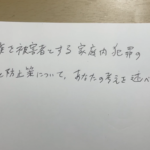 被害者とする家庭内犯罪の
防止策について、あなたの考えを述べ